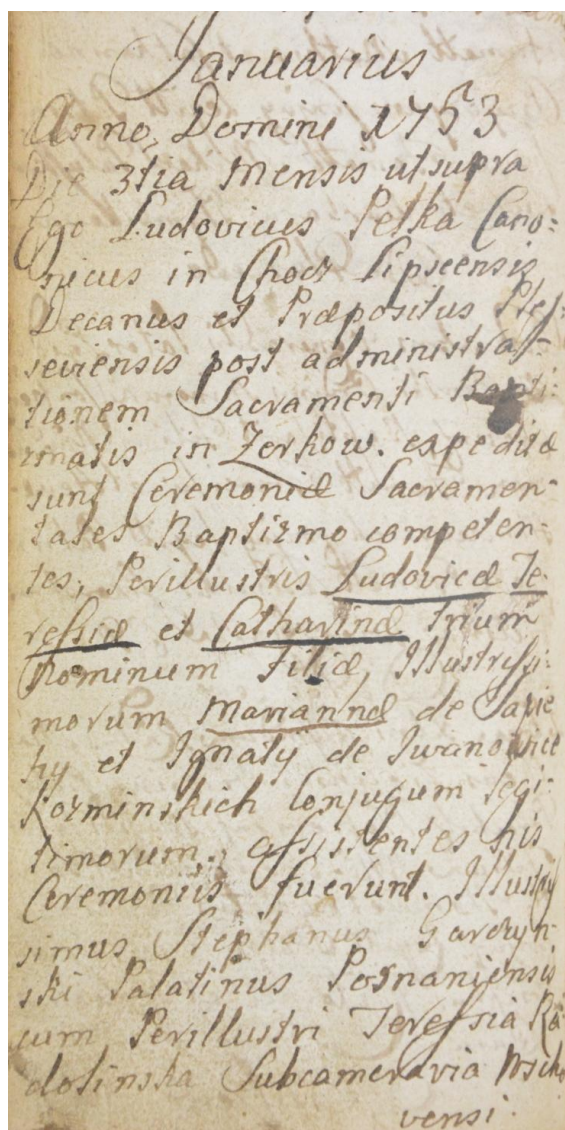 Januarius
Anno Domini 1753
Die 3tia Mensis ut supra
Ego Ludovicus Pelka Cano:
nicus in Chocz Lipseensis
Decanus et Præpositus Ples:
seviensis post administra-
tionem Sacramenti Bapti:
zmatis in Zerkow. expeditæ
sunt Ceremoniæ Sacramen-
tales Baptizmo competen-
tes, Perillustris Ludovicæ Te-
ressiæ et Catharinæ trium
Nominum Filiæ, Illustrissi:
morum Mariannæ de Sapie
hy et Ignatij de Iwanowice
Kozminskich Conjugum legi:
timorum, assistentes his
Ceremoniis fuerunt. Illustris
simus Stephanus Garczyn
ski Palatinus Posnaniensis
cum Perillustri Teressia Ra
dolinska Subcameraria Wscho
vensi.